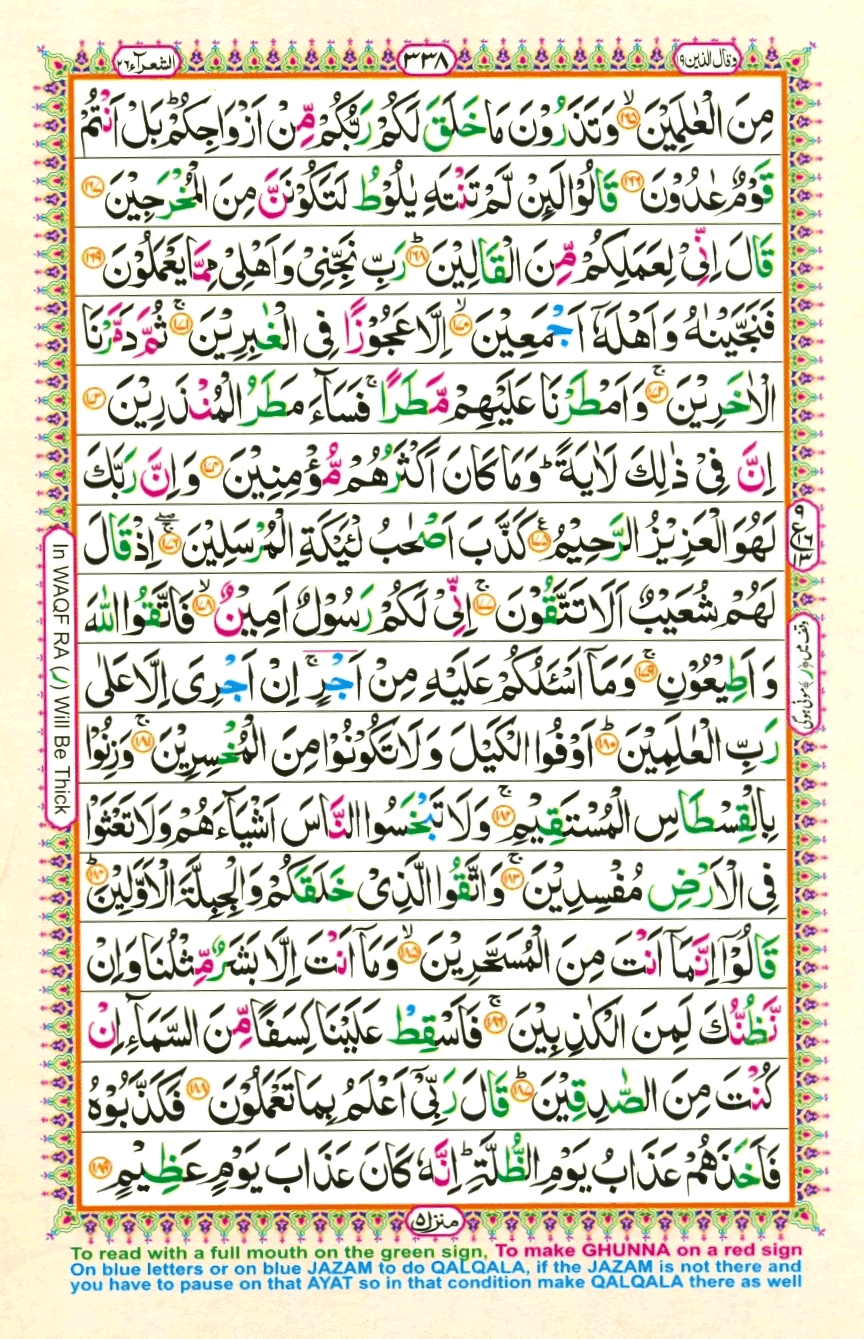 الشعرآء ٢٦
٣٣٨
وقال الذين ١٩
مِنَ الْعٰلَمِيْنَ ۙ‏﴿۱۶۵﴾ وَتَذَرُوْنَ مَا خَلَقَ لَكُمْ رَبُّكُمْ مِّنْ اَزْوَاجِكُمْ ؕ بَلْ اَنْتُمْ
قَوْمٌ عٰدُوْنَ ﴿۱۶۶﴾ قَالُوْا لَئِنْ لَّمْ تَنْتَهِ يٰلُوْطُ لَتَكُوْنَنَّ مِنَ الْمُخْرَجِيْنَ ﴿۱۶۷﴾
قَالَ اِنِّيْ لِعَمَلِكُمْ مِّنَ الْقَالِيْنَ ؕ﴿۱۶۸﴾ رَبِّ نَجِّنِيْ وَاَهْلِيْ مِمَّا يَعْمَلُوْنَ ﴿۱۶۹﴾
فَنَجَّيْنٰهُ وَاَهْلَهٗۤ اَجْمَعِيْنَ ۙ﴿۱۷۰﴾ اِلَّا عَجُوْزًا فِي الْغٰبِرِيْنَ ۚ﴿۱۷۱﴾ ثُمَّ دَمَّرْنَا
الْاٰخَرِيْنَ ۚ﴿۱۷۲﴾ وَاَمْطَرْنَا عَلَيْهِمْ مَّطَرًا ۚ فَسَآءَ مَطَرُ الْمُنْذَرِيْنَ ﴿۱۷۳﴾
اِنَّ فِيْ ذٰلِكَ لَاٰيَةً ؕ وَمَا كَانَ اَكْثَرُهُمْ مُّؤْمِنِيْنَ ﴿۱۷۴﴾ وَاِنَّ رَبَّكَ
لَهُوَ الْعَزِيْزُ الرَّحِيْمُ ﴿۱۷۵﴾ كَذَّبَ اَصْحٰبُ لْئَيْكَةِ الْمُرْسَلِيْنَ ۚۖ﴿۱۷۶﴾ اِذْ قَالَ
لَهُمْ شُعَيْبٌ اَلَا تَتَّقُوْنَ ۚ﴿۱۷۷﴾ اِنِّيْ لَكُمْ رَسُوْلٌ اَمِيْنٌ ۙ﴿۱۷۸﴾ فَاتَّقُوا اللّٰهَ
وَاَطِيْعُوْنِ ۚ﴿۱۷۹﴾ وَمَاۤ اَسْـَٔلُكُمْ عَلَيْهِ مِنْ اَجْرٍ ۚ اِنْ اَجْرِيَ اِلَّا عَلٰى
رَبِّ الْعٰلَمِيْنَ ؕ﴿۱۸۰﴾ اَوْفُوا الْكَيْلَ وَلَا تَكُوْنُوْا مِنَ الْمُخْسِرِيْنَ ۚ﴿۱۸۱﴾ وَزِنُوْا
بِالْقِسْطَاسِ الْمُسْتَقِيْمِ ۚ﴿۱۸۲﴾ وَلَا تَبْخَسُوا النَّاسَ اَشْيَآءَهُمْ وَلَا تَعْثَوْا
فِي الْاَرْضِ مُفْسِدِيْنَ ۚ﴿۱۸۳﴾ وَاتَّقُوا الَّذِيْ خَلَقَكُمْ وَالْجِبِلَّةَ الْاَوَّلِيْنَ ؕ﴿۱۸۴﴾
قَالُوْۤا اِنَّمَاۤ اَنْتَ مِنَ الْمُسَحَّرِيْنَ ۙ﴿۱۸۵﴾ وَمَاۤ اَنْتَ اِلَّا بَشَرٌ مِّثْلُنَا وَاِنْ
نَّظُنُّكَ لَمِنَ الْكٰذِبِيْنَ ۚ﴿۱۸۶﴾ فَاَسْقِطْ عَلَيْنَا كِسَفًا مِّنَ السَّمَآءِ اِنْ
كُنْتَ مِنَ الصّٰدِقِيْنَ ؕ﴿۱۸۷﴾ قَالَ رَبِّيْۤ اَعْلَمُ بِمَا تَعْمَلُوْنَ ﴿۱۸۸﴾ فَكَذَّبُوْهُ
فَاَخَذَهُمْ عَذَابُ يَوْمِ الظُّلَّةِ ؕ اِنَّهٗ كَانَ عَذَابَ يَوْمٍ عَظِيْمٍ ﴿۱۸۹﴾
In WAQF RA (ر) Will Be Thick
وقف میں (ر) موٹی ہوگی
منزل ٥
To read with a full mouth on the green sign, To make GHUNNA on a red sign
On blue letters or on blue JAZAM to do QALQALA, if the JAZAM is not there and
you have to pause on that AYAT so in that condition make QALQALA there as well